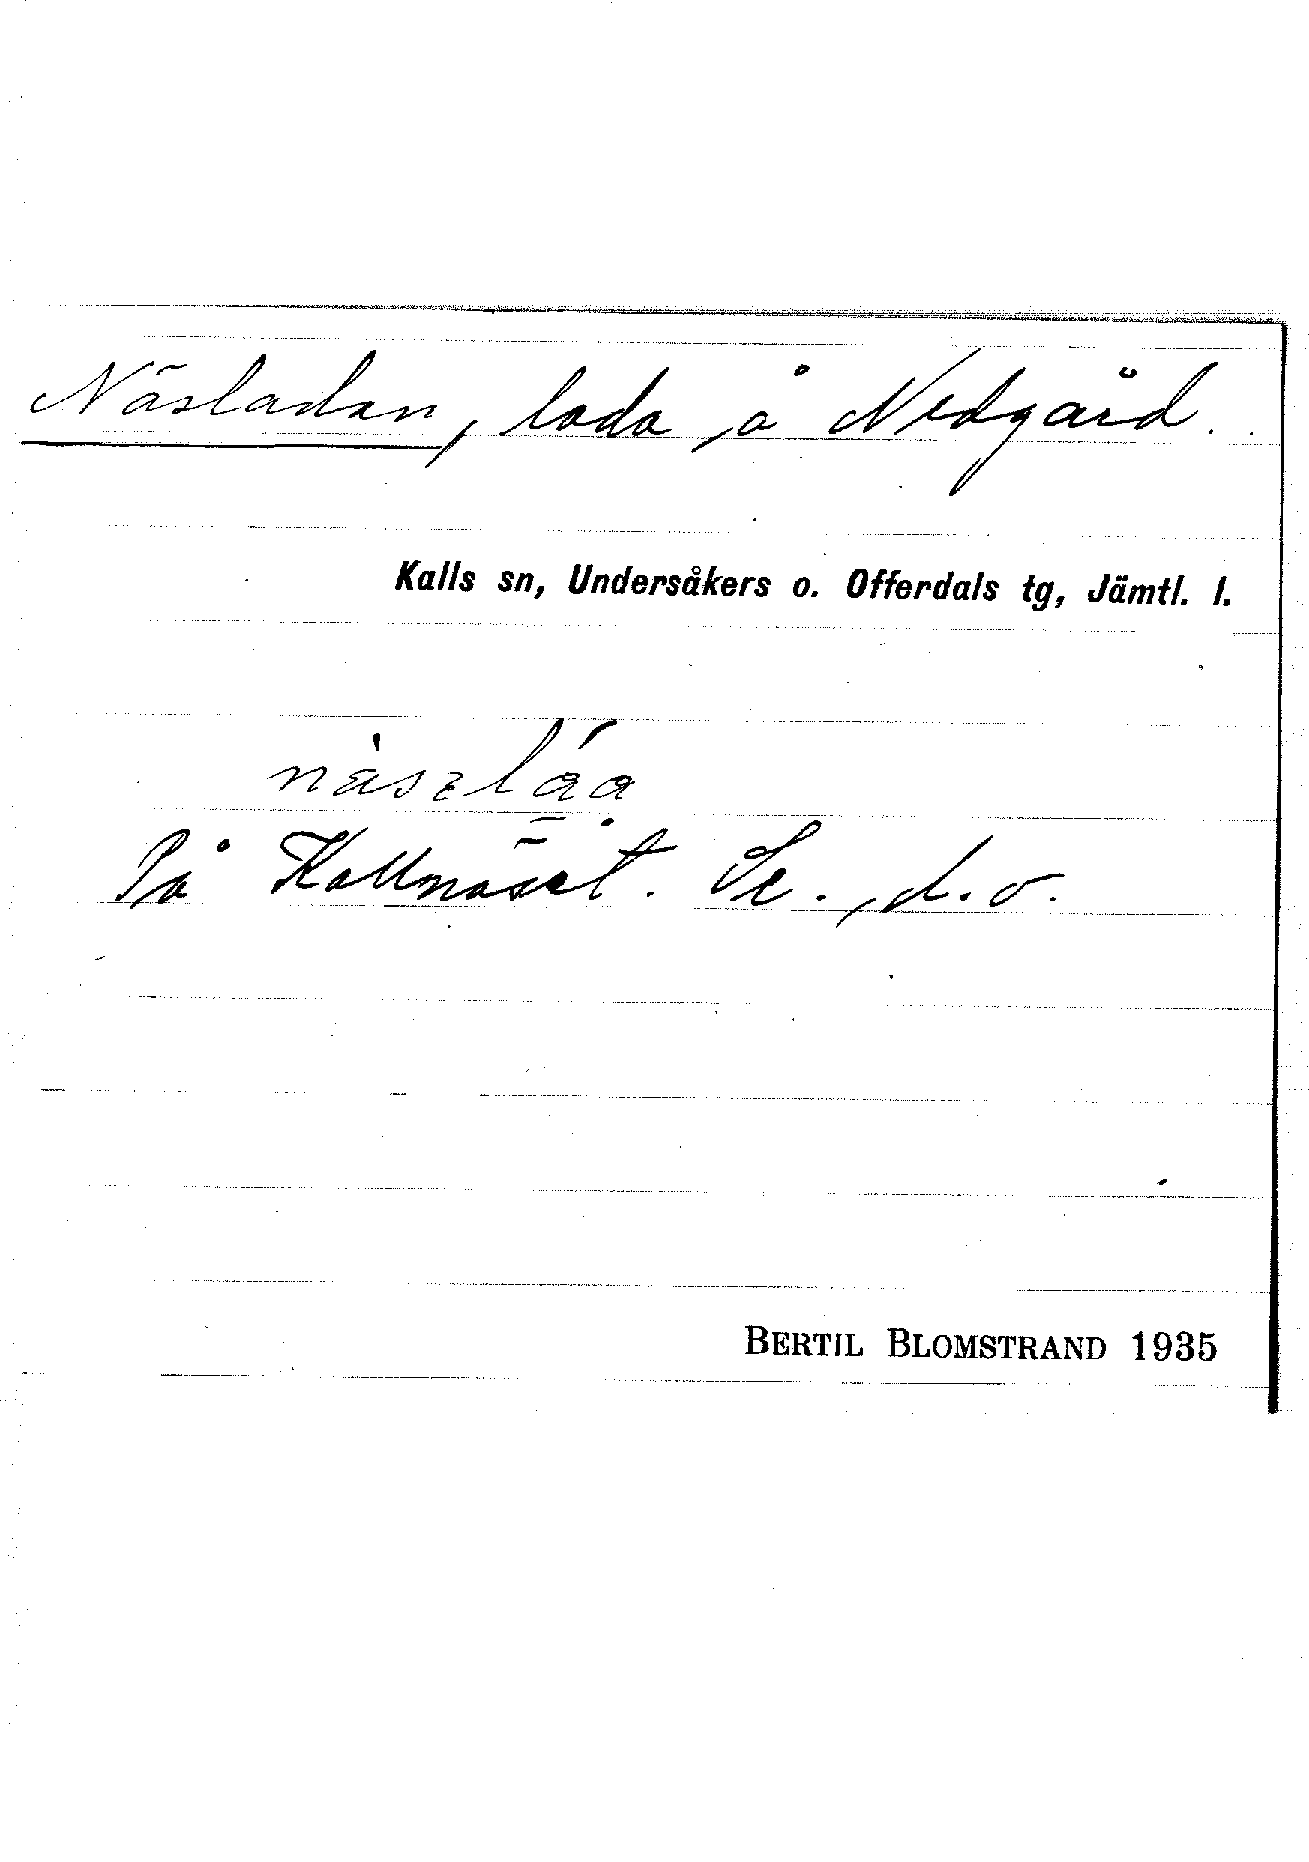 Näsladan, lada å Nedgård.
Kalls sn, Undersåkers o. Offerdals tg, Jämtl. l.
På Kallnäset. Se. d.o.
BERTIL BLOMSTRAND 1935